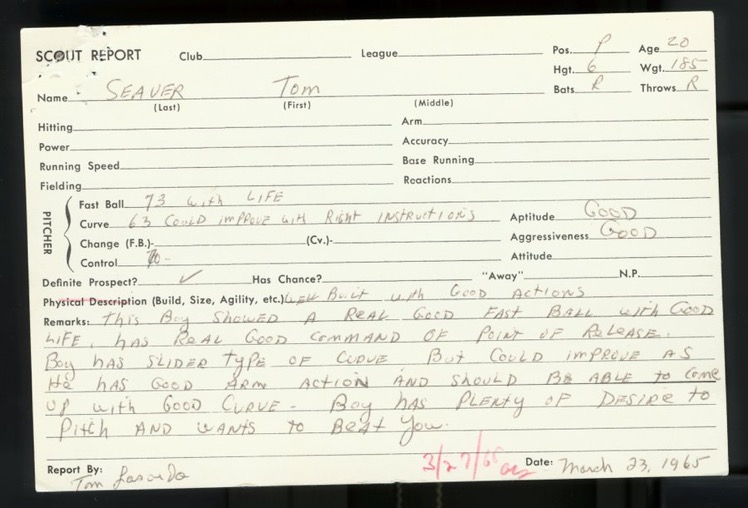 SCOUT REPORT Club League Pos. P Age 20
Hgt. 6 Wgt. 185
Name SEAVER Tom Bats R Throws R
(Last) (First) (Middle)
Hitting Arm
Power Accuracy
Running Speed Base Running
Fielding Reactions
PITCHER
Fast Ball 73 with LIFE
Curve 63 COULD IMPROVE with Right INSTRUCTIONS Aptitude GOOD
Change (F.B.)- (Cv.)- Aggressiveness GOOD
Control 70- Attitude
Definite Prospect? ✓ Has Chance? "Away" N.P.
Physical Description (Build, Size, Agility, etc.) WELL Built with GOOD ACTIONS
Remarks: This Boy SHOWED A REAL GOOD FAST BALL with GOOD
LIFE, HAS REAL GOOD COMMAND OF POINT OF RELEASE.
Boy HAS SLIDER TYPE OF CURVE BUT COULD IMPROVE AS
HE HAS GOOD ARM ACTION AND SHOULD BE ABLE to COME
UP with GOOD CURVE - Boy HAS PLENTY OF DESIRE to
PitCH AND WANTS to BEAT YOU.
Report By: Tom Lasorda 3/27/65 Date: March 23, 1965